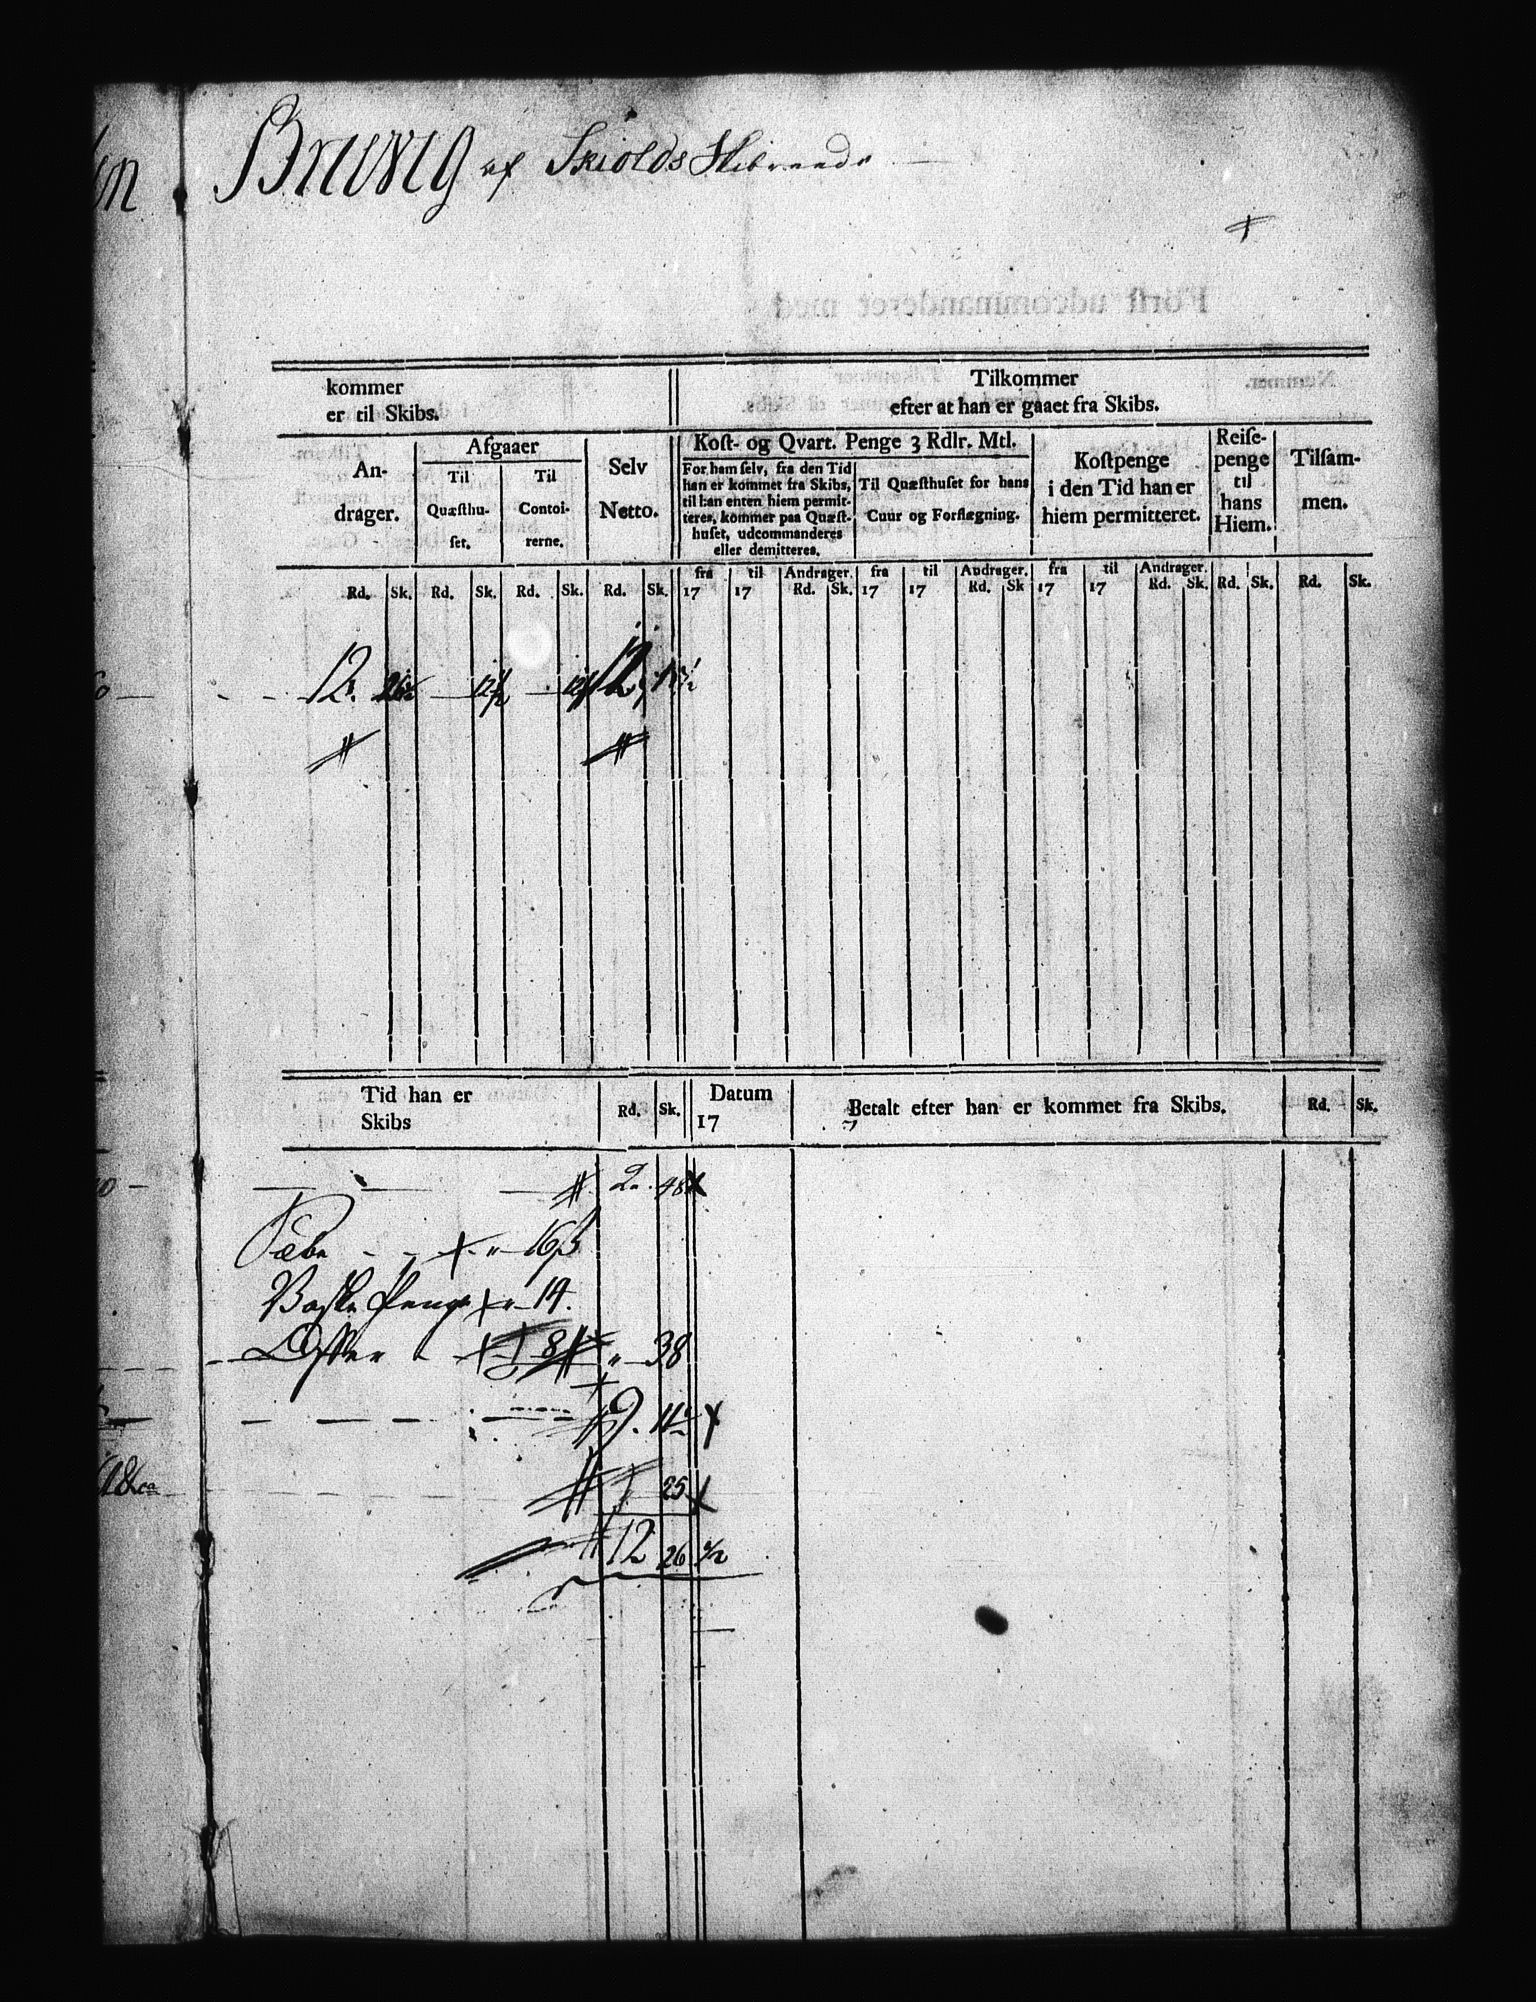 Bruug af Skiolds Skibreede
kommer
er til Skibs.
Tilkommer
efter at han er gaaet fra Skibs.
An-
drager.
Afgaaer
Til
Quæsthu-
set.
Til
Contoi-
rerne.
Selv
Netto.
Kost- og Qvart. Penge 3 Rdlr. Mtl.
For ham selv, fra den Tid
han er kommet fra Skibs,
til han enten hiem permit-
teres, kommer paa Quæst-
huset, udcommanderes
eller demitteres.
Til Quæsthuset for hans
Cuur og Forflægning.
Kostpenge
i den Tid han er
hiem permitteret.
Reise-
penge
til
hans
Hiem.
Tilsam-
men.
fra til Andrager. fra til Andrager. fra til Andrager.
Rd. Sk. Rd. Sk. Rd. Sk. Rd. Sk. 17 17 Rd. Sk. 17 17 Rd. Sk 17 17 Rd. Sk. Rd. Sk. Rd. Sk.
12. 26½ 12½ 12½ 12 1½
Tid han er
Skibs
Rd. Sk.
Datum
17
Betalt efter han er kommet fra Skibs.
Rd. Sk.
2. 48
Sæbe - - " 16 β
Vaske Penge " 14.
Offer - 8 " 38
9. 11½
1 25
12 26 ½